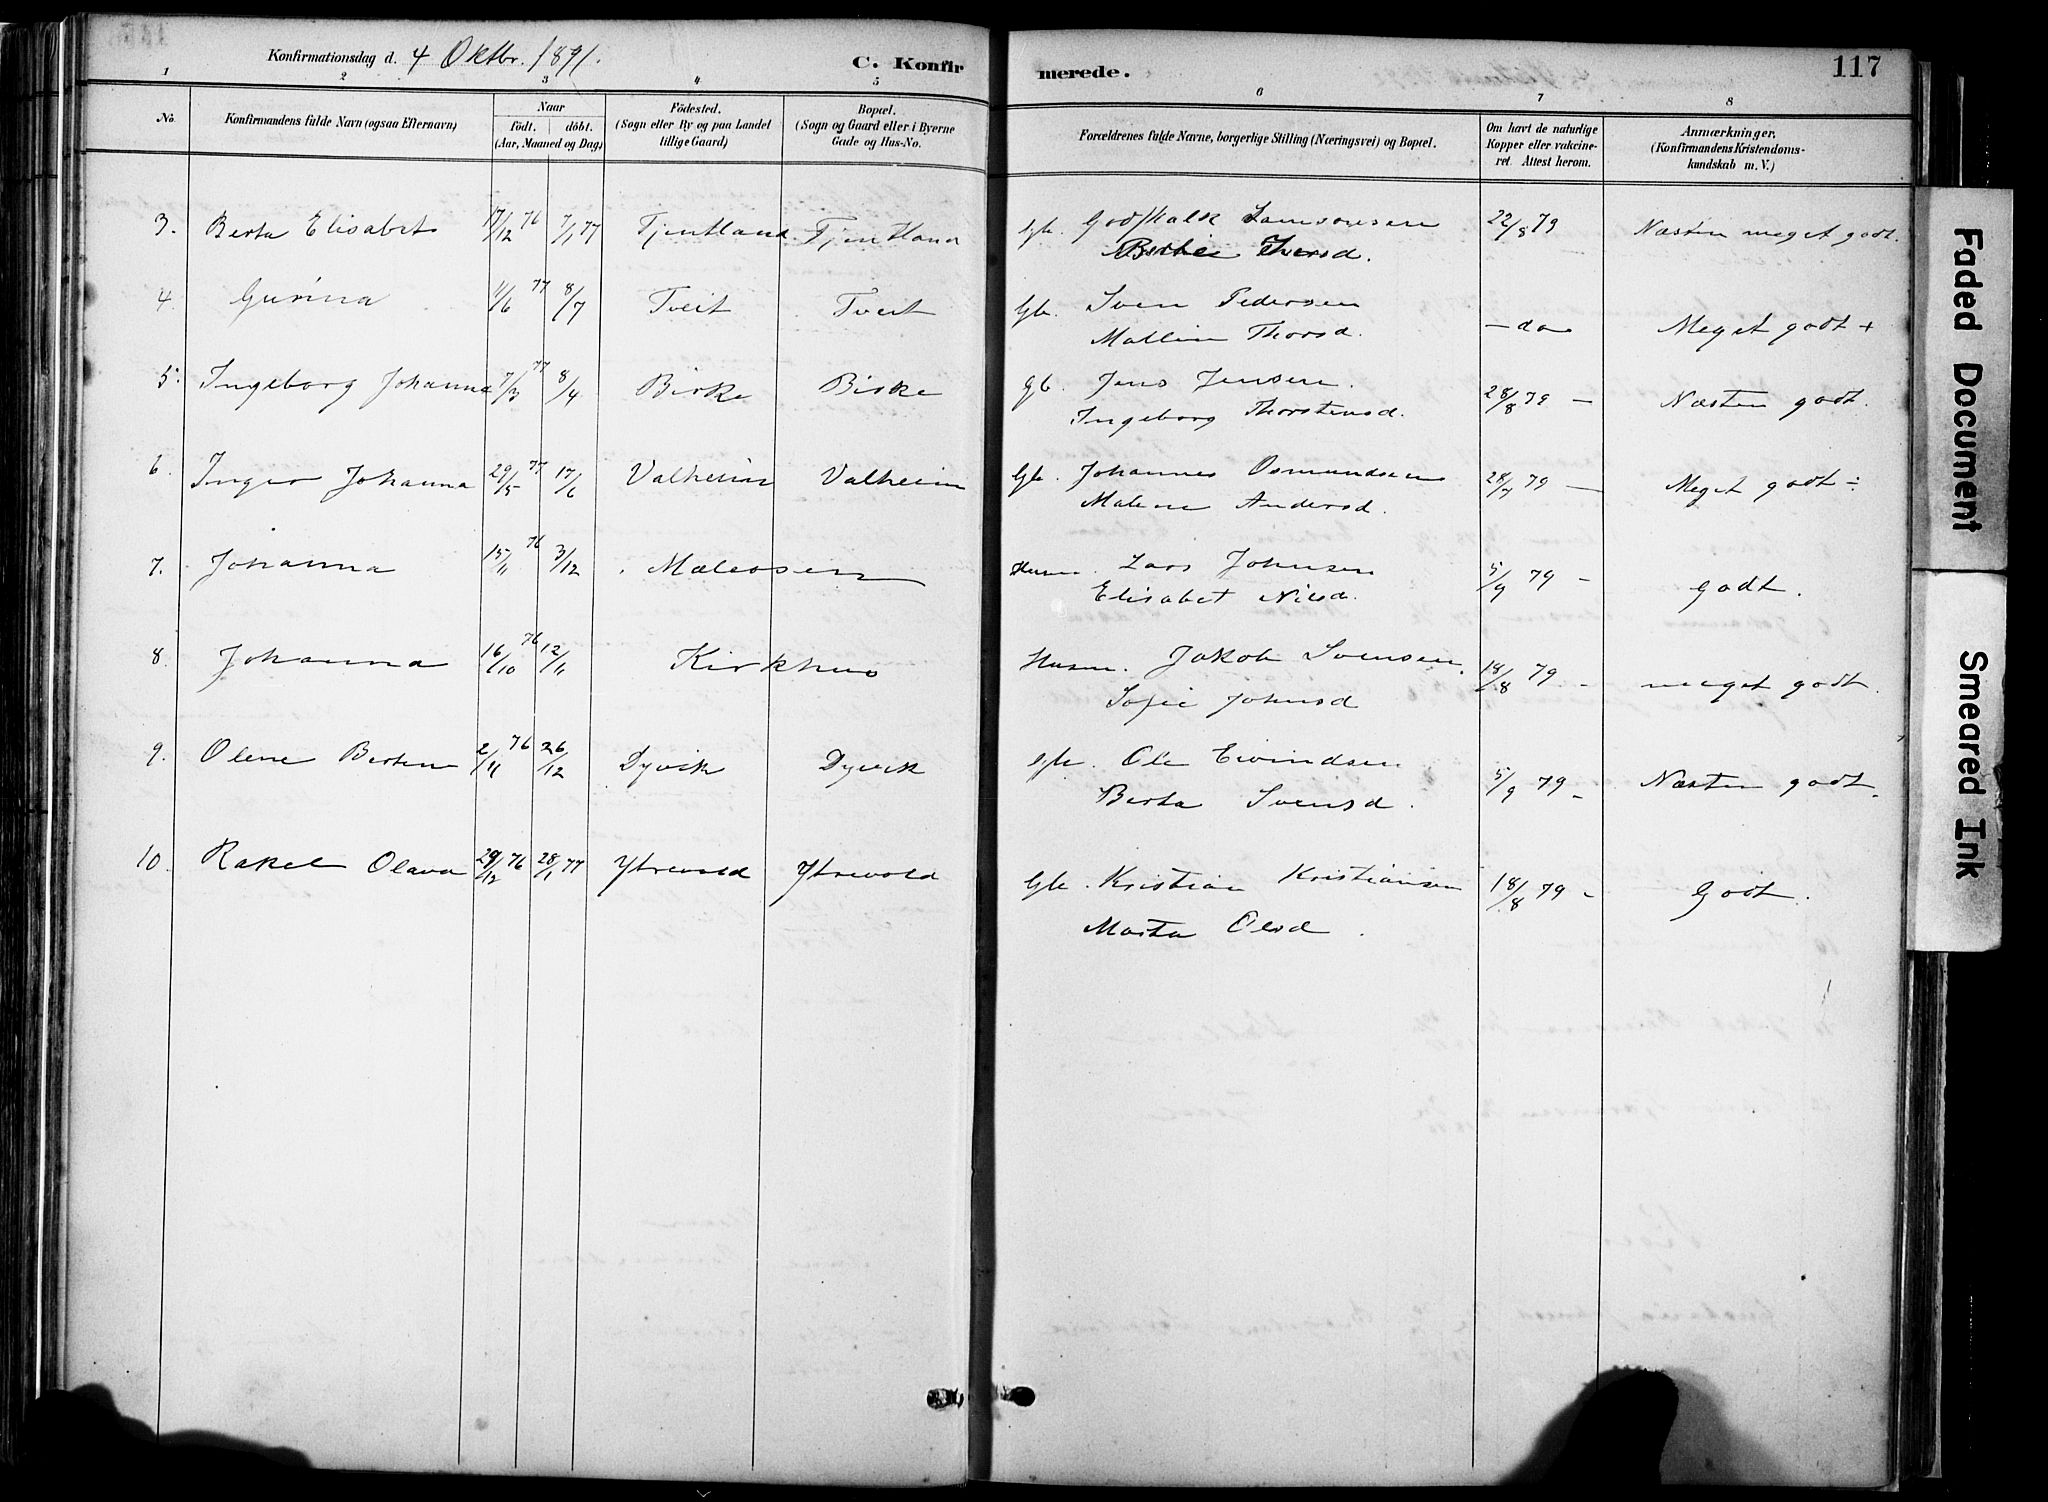 Konfirmationsdag d. 4 Oktbr. 1891.
C. Konfirmerede.
117
1 2 3 4 5 6 7 8
No.
Konfirmandens fulde Navn (ogsaa Efternavn)
Naar
födt. döbt.
(Aar, Maaned og Dag)
Födested.
(Sogn eller By og paa Landet tillige Gaard)
Bopæl.
(Sogn og Gaard eller i Byerne Gade og Hus-No.
Forældrenes fulde Navne, borgerlige Stilling (Næringsvei) og Bopæl.
Om havt de naturlige Kopper eller vakcineret. Attest herom.
Anmærkninger.
(Konfirmandens Kristendomskundskab m. V.)
3. Berta Elisabet 17/12 76 7/1 77 Fjentland Fjentland Gb. Godskalk Samsonsen 22/8 79 Næsten meget godt.
Berthe Thorsd.
4. Gurina 11/6 77 8/7 Tveit Tveit Gb. Sven Pedersen – do Meget godt +
Mallin Thorsd.
5. Ingeborg Johanna 7/3 77 8/4 Birke Birke Gb. Jens Jensen. 28/8 79 – Næsten godt.
Ingeborg Thorstensd.
6. Inger Johanna 29/5 77 17/6 Valheim Valheim Gb. Johannes Osmundsen 28/7 79 – Meget godt ÷
Malene Andersd.
7. Johanna 15/11 76 3/12 Mæleosen Husm. Lars Johnsen 5/9 79 – godt.
Elisabet Nilsd.
8. Johanna 16/10 76 12/11 Kirkhus Husm. Jakob Svensen. 18/8 79 – meget godt.
Sofie Johnsd
9. Olene Bertine 2/11 76 26/12 Dyvik Dyvik Gb. Ole Eivindsen 5/9 79 – Næsten godt.
Berta Svensd.
10. Rakel Olava 29/12 76 28/1 77 Ytrevold Ytrevold Gb. Kristian Kristiansen 18/8 79 – Godt.
Marta Olsd.
Faded Document
Smeared Ink